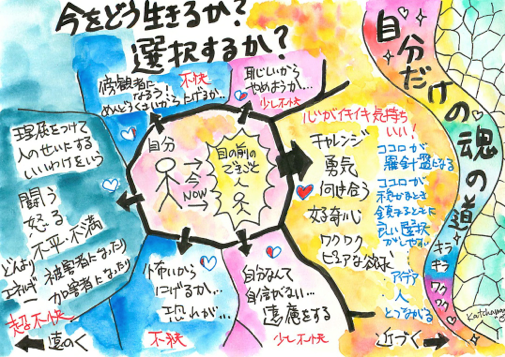 今をどう生きるか?
選択するか?
傍観者に
なろう!
めんどうくさいから上げるか…
不快
恥じいから
やめようか…
少し不快
理屈をつけて
人のせいにする
いいわけをいう
闘う
怒る
不平・不満
どんより
エネルギー
被害者になったり
加害者になったり
超不快
遠のく
自分
今
NOW
目の前の
できごと
人
怖いから
にげるか…
恐れが…
不快
自分なんて
自信がない…
遠慮をする
少し不快
心がイキイキ気持ち
いい!
チャレンジ
勇気
向き合う
好奇心
ワクワク
ピュアな欲求
ココロが
羅針盤になる
ココロが
穏かなとき
良い選択
がしやすい
アイデア
人
とつながる
近づく
自分だけの魂の道
キラ
キラ
ワク
ワク